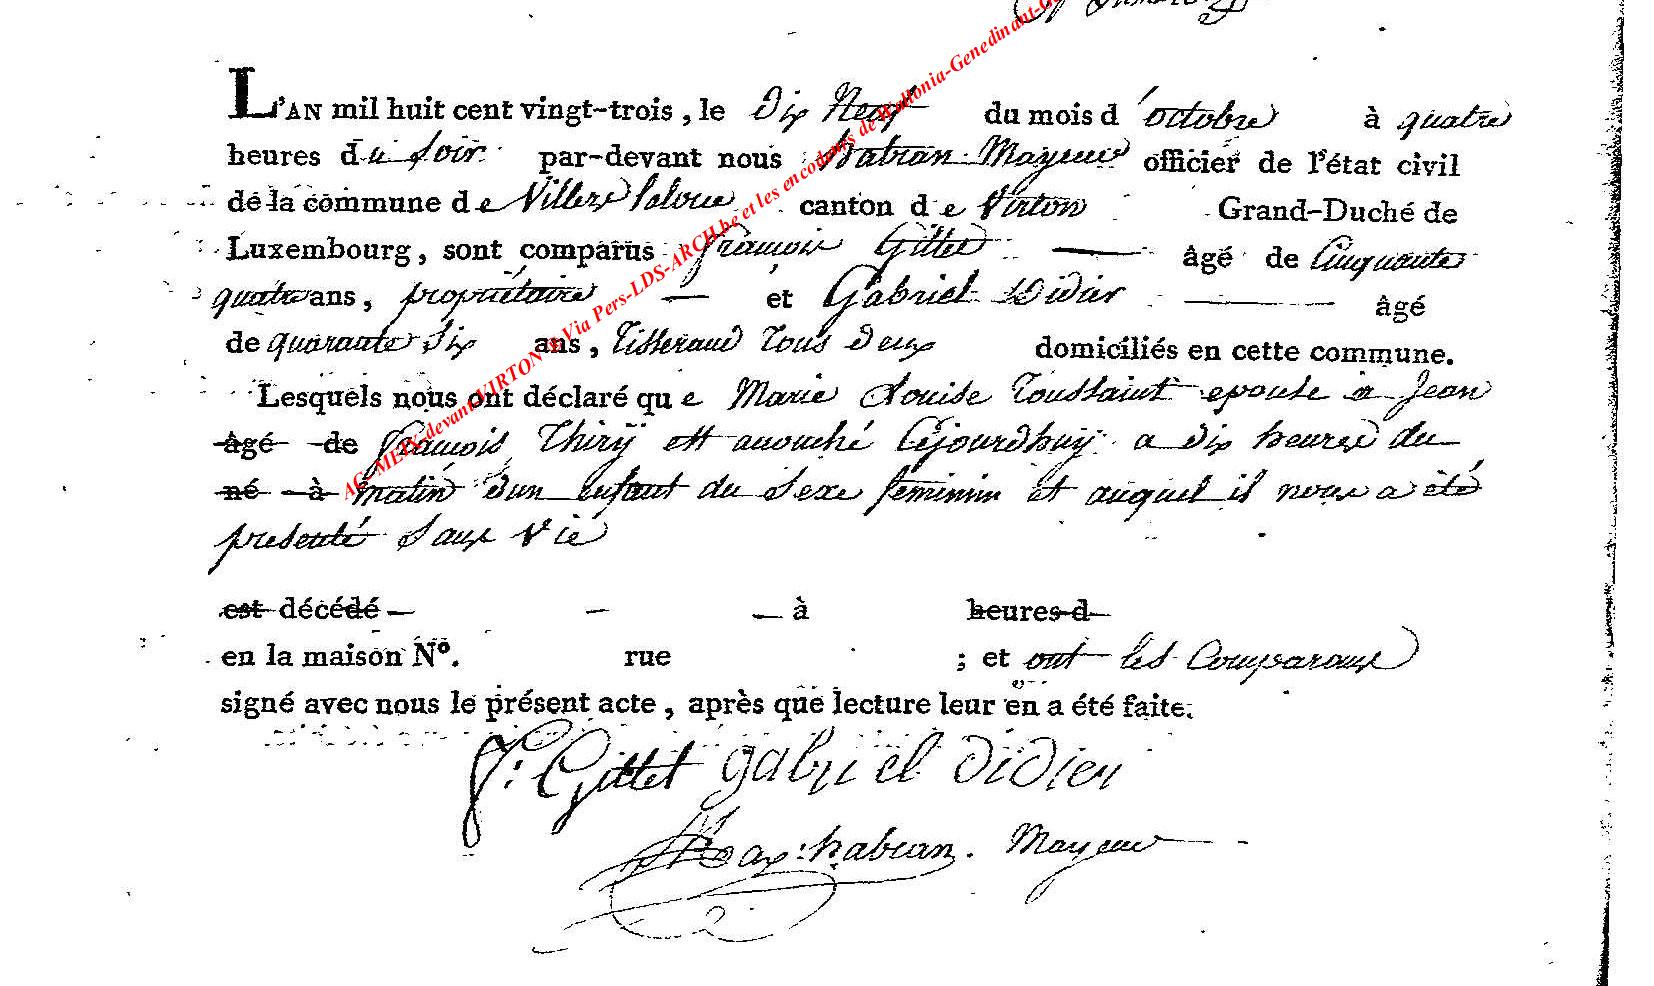 L'AN mil huit cent vingt-trois, le Dix Neuf du mois d'octobre à quatre
heures du soir par-devant nous habran Mayeur officier de l'état civil
de la commune de Villers laloue canton de Virton Grand-Duché de
Luxembourg, sont comparus François Gillet âgé de Cinquante
quatre ans, propriétaire et Gabriel Didier âgé
de quarante Six ans, Tisserand Tous Deux domiciliés en cette commune.
Lesquels nous ont déclaré que Marie Louise Toussaint epouse a Jean
âgé de François Thiry est accouché Cejourdhuy a dix heures du
né à matin d'un enfant du Sexe feminin et auquel il nous a été
presenté Sans Vie
est décédé à heures d
en la maison N°. rue ; et ont les Comparans
signé avec nous le présent acte, après que lecture leur en a été faite.
f: Gillet gabriel didier
habran. Mayeur
AC-METIX-devant-VIRTON Via Pers-LDS-ARCH.be et les encodeurs de Wallonia-Genedinant-G